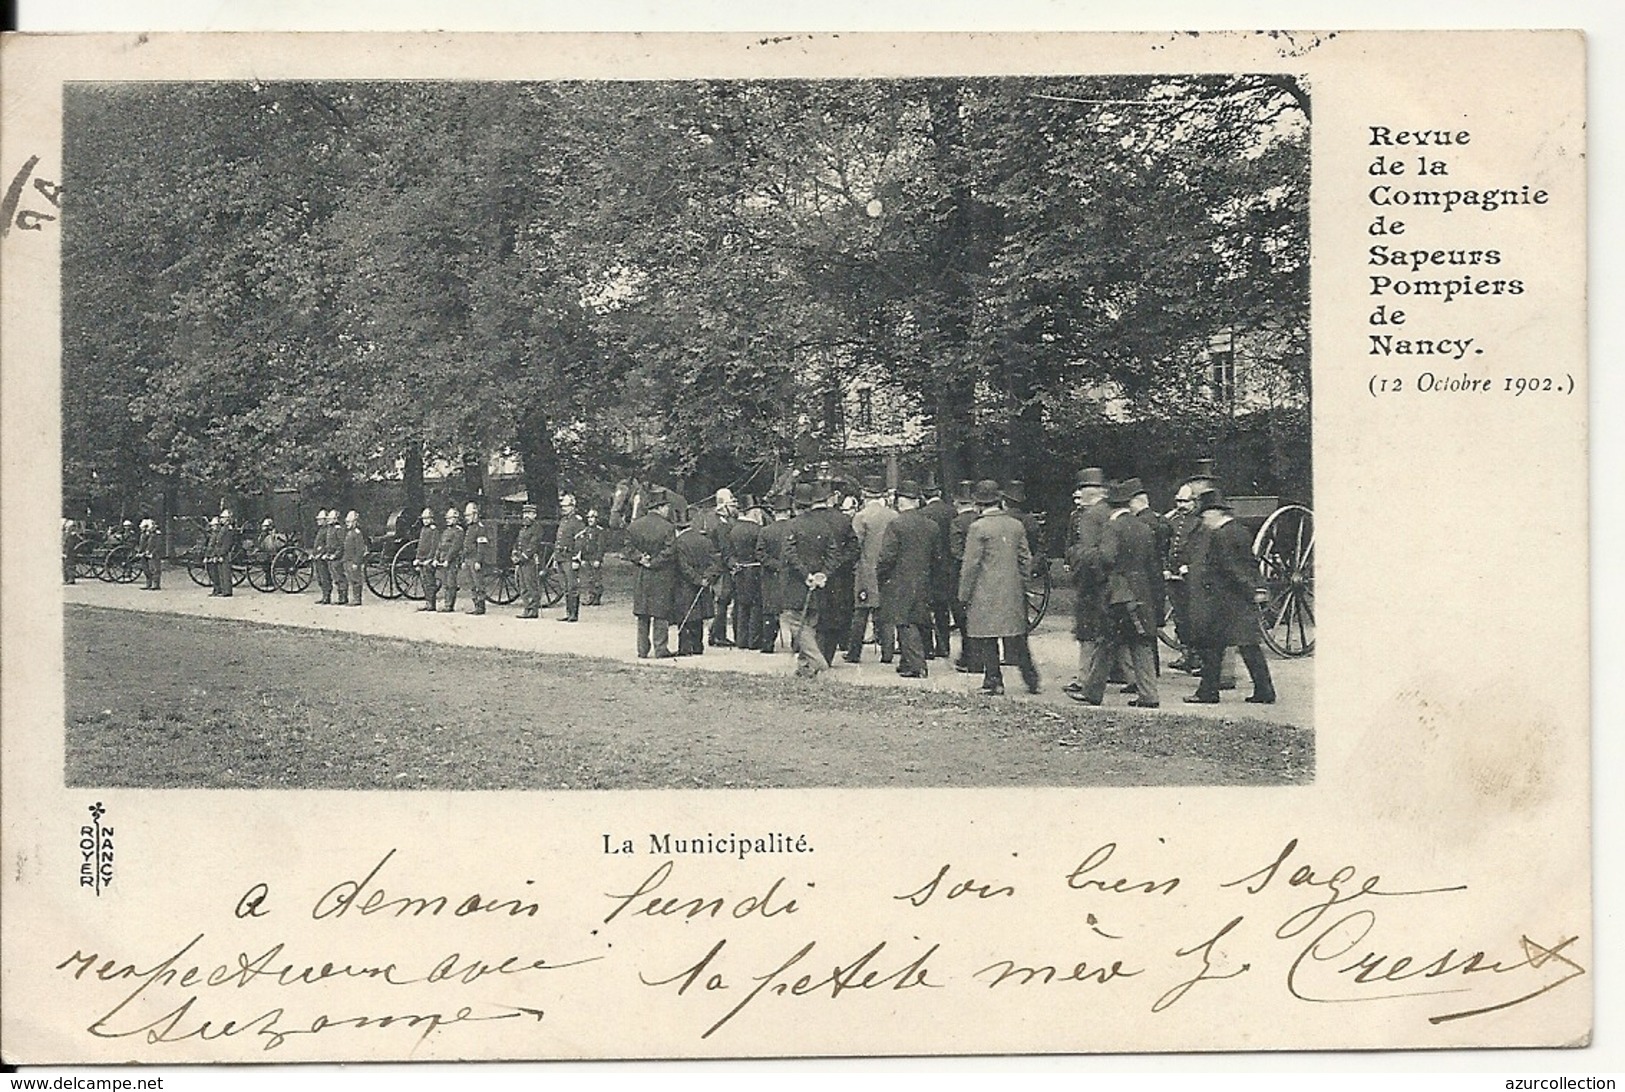 Revue
de la
Compagnie
de
Sapeurs
Pompiers
de
Nancy.
(12 Octobre 1902.)
ROYER NANCY
La Municipalité.
a demain lundi sois bien sage
respectueux avec ta petite mère G. Cresset
Suzanne
Delcampe.net
azurcollection